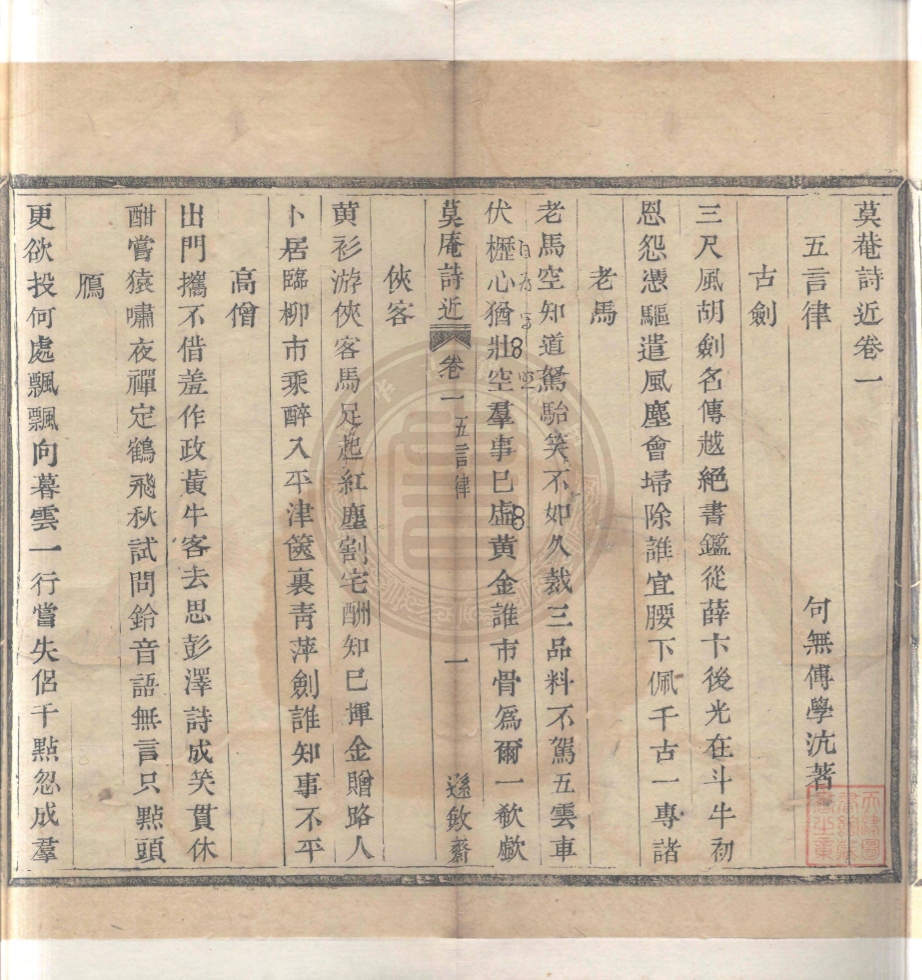 莫菴詩近卷一
五言律
何無傅學沆著
古劍
三尺風胡劍名傳越絕書鑑從薛卞後光在斗牛初
恩怨憑驅遣風塵會埽除誰宜腰下佩千古一專諸
老馬
老馬空知道駑駘笑不如久裁三品料不駕五雲車
伏櫪心猶壯空羣事巳虛黃金誰市骨爲爾一欷歔
莫庵詩近 卷一 五言律 一 遜敏齋
俠客
黃衫游俠客馬足起紅塵割宅酬知巳揮金贈路人
卜居臨柳市乘醉入平津篋裏靑萍劍誰知事不平
高僧
出門攜不借羞作政黃牛客去思彭澤詩成笑貫休
酣嘗猿嘯夜禪定鶴飛秋試問鈴音語無言只點頭
鴈
更欲投何處飄飄向暮雲一行嘗失侶千點忽成羣